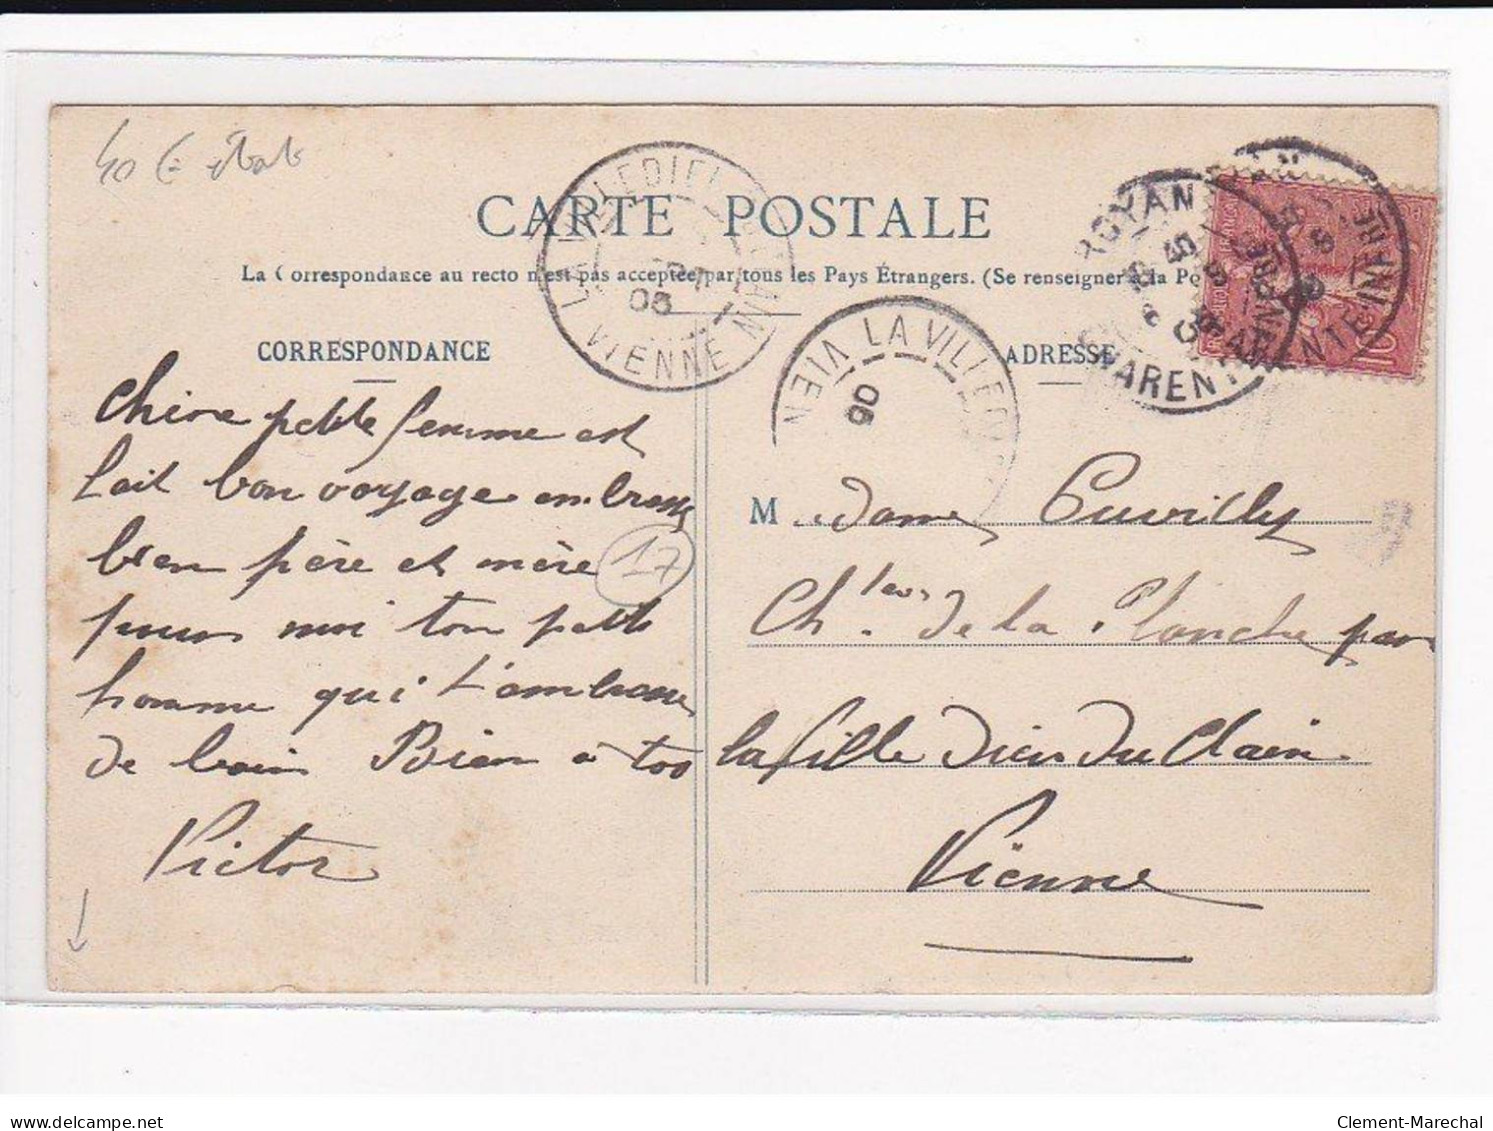 40 €
LAVILLEDIEU
VIENNE
06
CARTE POSTALE
La Correspondance au recto n'est pas acceptée par tous les Pays Étrangers. (Se renseigner à la Po
ROYAN
CHARENTE INFRE
10
CORRESPONDANCE
LA VILLEDIEU
VIENNE
06
ADRESSE
Chère petite femme est
fait bon voyage embrasse
bien père et mère
pour moi ton petit
homme qui t'embrasse
de loin Bien à toi
Victor
17
Madame Cuvilly
Ch. de la Planche par
la Ville Dieu du Clain
Vienne
Clement-Marechal
delcampe.net